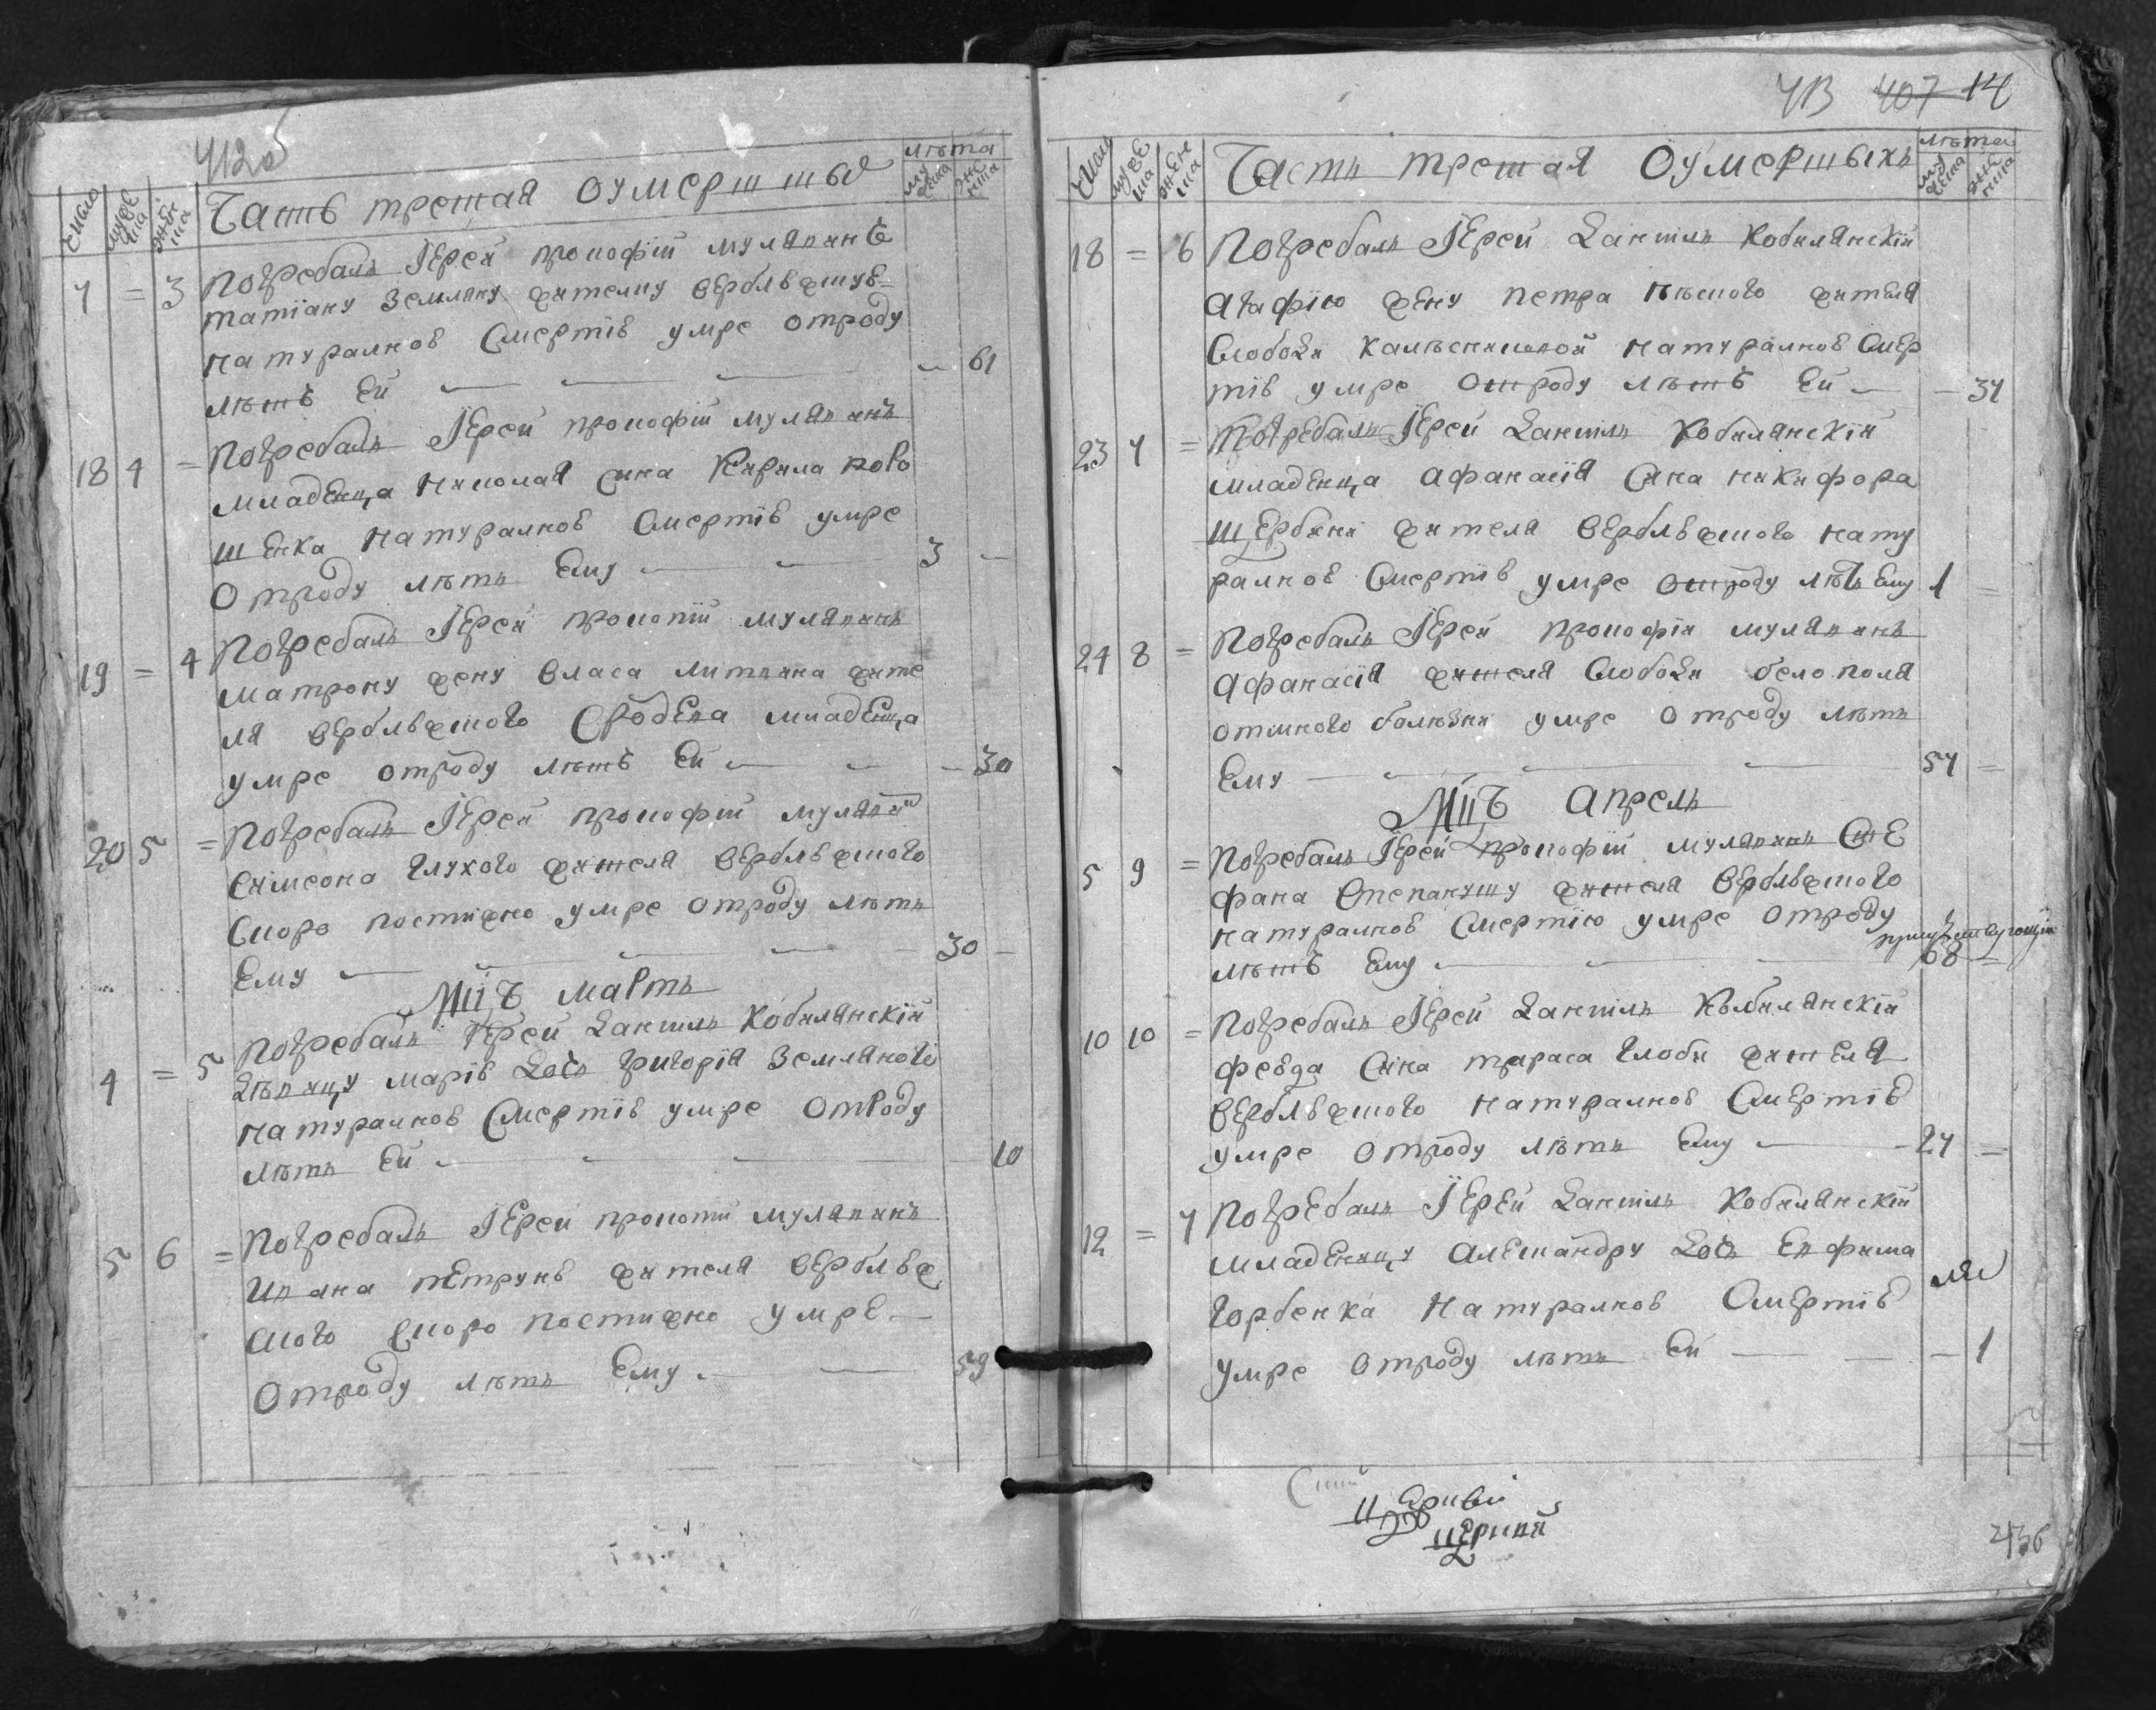 412об
Часть третая оумершыхъ
число мужеска женска лѣта мужеска женска
7 = 3 Погребалъ Іерей прокофій мулявинъ
татіану Землянку жителку верблюжскую
натуралною Смертію умре отроду
лѣтъ Ей — 61
18 4 = Погребалъ Іерей прокофій мулявинъ
младенца николая Сина Кирила
шенка натуралною Смертію умре
отроду лѣтъ Ему 3 —
19 = 4 Погребалъ Іерей прокопій мулявинъ
матрону жену власа литвина жите
ля верблюжского Сродева младенца
умре отроду лѣтъ Ей — 30
20 5 = Погребалъ Іерей прокофій мулявин
Симеона глухого жителя верблюжского
Скоро постижно умре отроду лѣтъ
Ему 30 —
Мцъ мартъ
4 = 5 Погребалъ Іерей Даніилъ Кобилянскій
дѣвицу марію дочь григорія Земляного
натуралною Смертію умре отроду
лѣтъ Ей — 10
5 6 = Погребалъ Іерей прокопій мулявинъ
Ивана жителя верблюж
ского Скоро постижно умре
отроду лѣтъ Ему 59
413 407 14
Часть третая оумершыхъ
число мужеска женска лѣта мужеска женска
18 = 6 Погребалъ Іерей Даніилъ Кобилянскій
агафію жену петра нѣмого жителя
Слободи натуралною Смер
тію умре отроду лѣтъ Ей — 37
23 7 = Погребалъ Іерей Даніилъ Кобилянскій
младенца афанасія Сина никифора
щербини жителя верблюжского нату
ралною Смертію умре отроду лѣтъ Ему 1 =
24 8 = Погребалъ Іерей прокофій мулявинъ
афанасія жителя Слободи бело поля
отмного болѣзни умре отроду лѣтъ
Ему 57 =
Мцъ апрель
5 9 = Погребалъ Іерей прокофій мулявинъ Сте
фана жителя верблюжского
натуралною Смертію умре отроду
лѣтъ Ему 68 =
10 10 = Погребалъ Іерей Даніилъ Кобилянскій
Сина тараса глоби жителя
верблюжского натуралною Смертію
умре отроду лѣтъ Ему — 27 =
12 = 7 Погребалъ Іерей Даніилъ Кобилянскій
младеницу александру дочь Ефима
горбенка натуралною Смертію
умре отроду лѣтъ Ей — 1
436